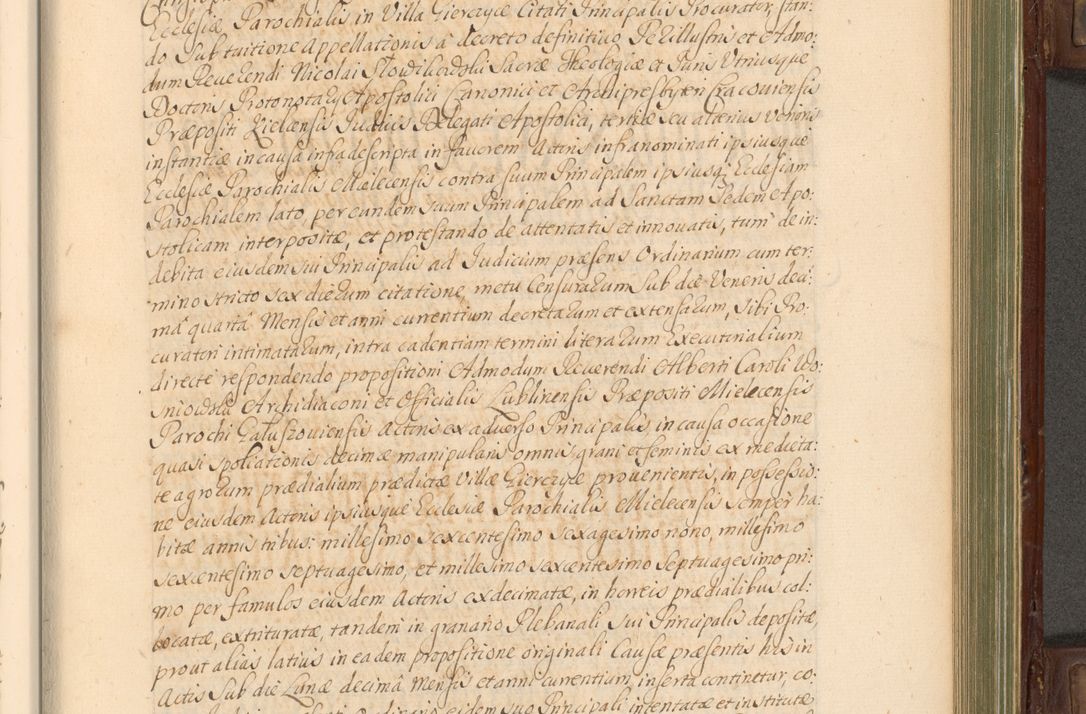 Ecclesiæ Parochialis in Villa Gierczyce Citati Principalis Procurator, stan:
do Sub tuitione Appellationis â decreto definitivo Perillustris et Admo:
dum Reverendi Nicolai Słowikowski Sacræ Theologiæ et Juris Utriusque
Doctoris Protonotarij Apostolici Canonici et Archipresbyteri Cracoviensis
Præpositi Kielcensis Judicis Delegati Apostolici, tertiæ seu alterius Venoris
instantiæ in causa infradescripta in favorem Actoris infranominati ipsiusque
Ecclesiæ Parochialis Mielecensis contra suum Principalem ipsiusq; Ecclesiam
Parochialem lato, per eundem suum Principalem ad Sanctam Sedem Apo:
stolicam interpositæ, et protestando de attentatis et innovatis, tum de in:
debita eiusdem sui Principalis ad Judicium præsens Ordinarium cum ter:
mino stricto sex dierum citatione, metu Censurarum sub die Veneris deci:
mâ quartâ Mensis et anni currentium decretarum et extensarum, Sibi Pro:
curatori intimatarum, intra cadentiam termini literarum Executorialium
directè respondendo propositioni Admodum Reverendi Alberti Caroli Wo:
Archidiaconi et Officialis Lublinensis Præpositi Mielecensis
Parochi Gałuszoviensis Actoris ex adverso Principalis, in causa occasione
quasi spoliationis decimæ manipularis omnis grani et seminis ex medieta:
te agrorum prædialium prædictæ Villæ Gierczyce provenientis, in possessio:
ne eiusdem Actoris ipsiusque Ecclesiæ Parochialis Mielecensis semper ha:
bitæ annis tribus: millesimo sexcentesimo sexagesimo nono, millesimo
sexcentesimo septuagesimo, et millesimo sexcentesimo septuagesimo pri:
mo per famulos eiusdem Actoris exdecimatæ, in horreis prædialibus col:
locatæ, extrituratæ, tandem in granario Plebanali Sui Principalis depositæ,
prout alias latius in eadem propositione originali Causæ præsentis his in
Actis Sub die Lunæ decimâ Mensis et anni currentium, inserta continetur, co:
eidem suo Principali intentatæ et institutæ